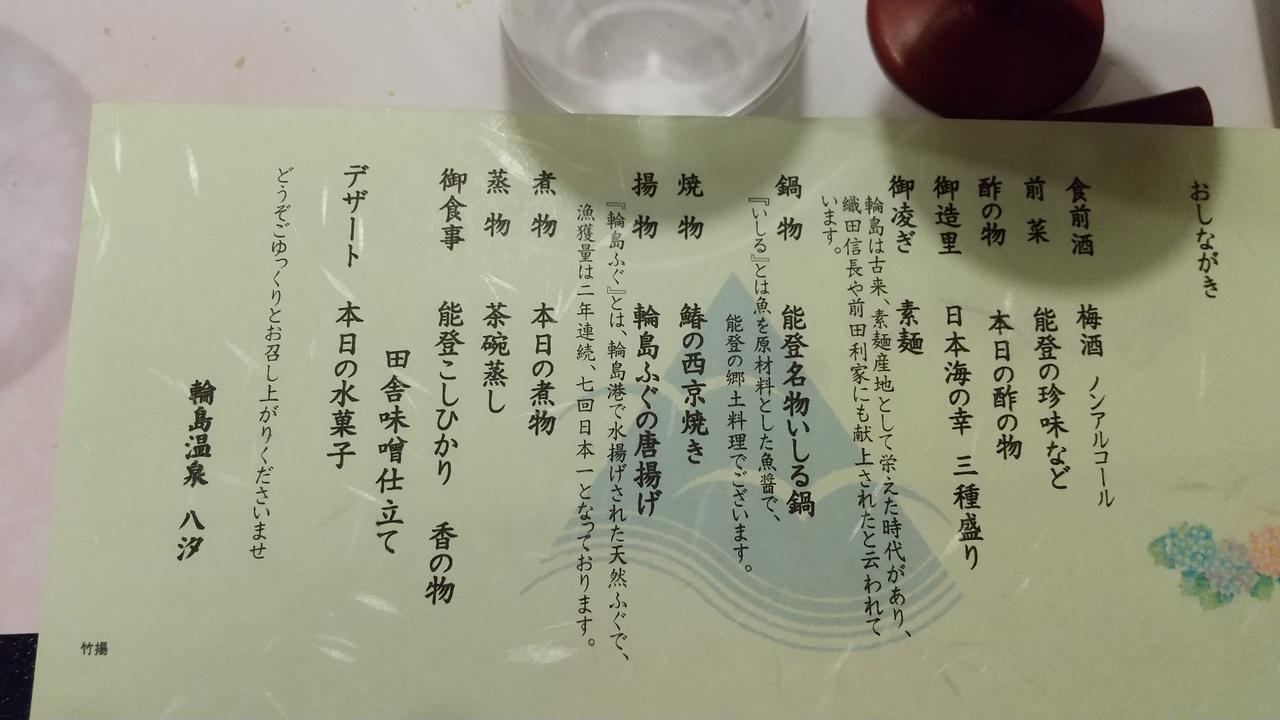 おしながき
食前酒 梅酒 ノンアルコール
前菜 能登の珍味など
酢の物 本日の酢の物
御造里 日本海の幸 三種盛り
御凌ぎ 素麺
輪島は古来、素麺産地として栄えた時代があり、
織田信長や前田利家にも献上されたと云われて
います。
鍋物 能登名物いしる鍋
『いしる』とは魚を原材料とした魚醤で、
能登の郷土料理でございます。
焼物 鰆の西京焼き
揚物 輪島ふぐの唐揚げ
『輪島ふぐ』とは、輪島港で水揚げされた天然ふぐで、
漁獲量は二年連続、七回日本一となっております。
煮物 本日の煮物
蒸物 茶碗蒸し
御食事 能登こしひかり 香の物
田舎味噌仕立て
デザート 本日の水菓子
どうぞごゆっくりとお召し上がりくださいませ
輪島温泉 八汐
竹揚